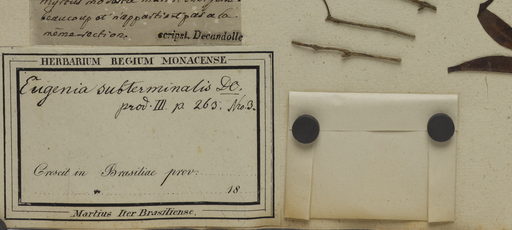 beaucoup et n'appartient pas a la
même section.
scripst. Decandolle
HERBARIUM REGIUM MONACENSE
Eugenia subterminalis DC.
prod. III p. 263. No. 3.
Crescit in Brasiliae prov:
18
Martius Iter Brasiliense.